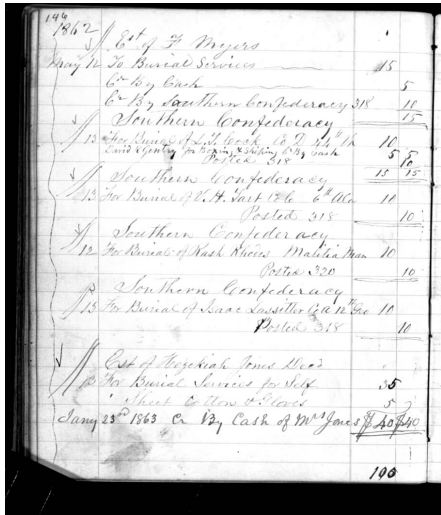 146
1862
Est of F Meyers
May 12 To Burial Services 15
Cr By Cash 5
Cr By Southern Confederacy 318 10
15
Southern Confederacy
13 For Burial of L. T. Cook Co D 44th 10
David & Gentry for Boxing & Shiping Cr By Cash 5 5
Posted 318 10
15 15
Southern Confederacy
13 For Burial of V. H. Tart 6th Ala 10
Posted 318 10
Southern Confederacy
12 For Burial of Kash Rhodes Malitia Man 10
Posted 320 10
Southern Confederacy
13 For Burial of Isaac Lassitter Co A Geo 10
Posted 318 10
Est of Hezekiah Jones Decd
13 For Burial Services for Self 35
Sheet Cotton & Gloves 5
Jany 23rd 1863 Cr By Cash of Mrs Jones $40 $40
100